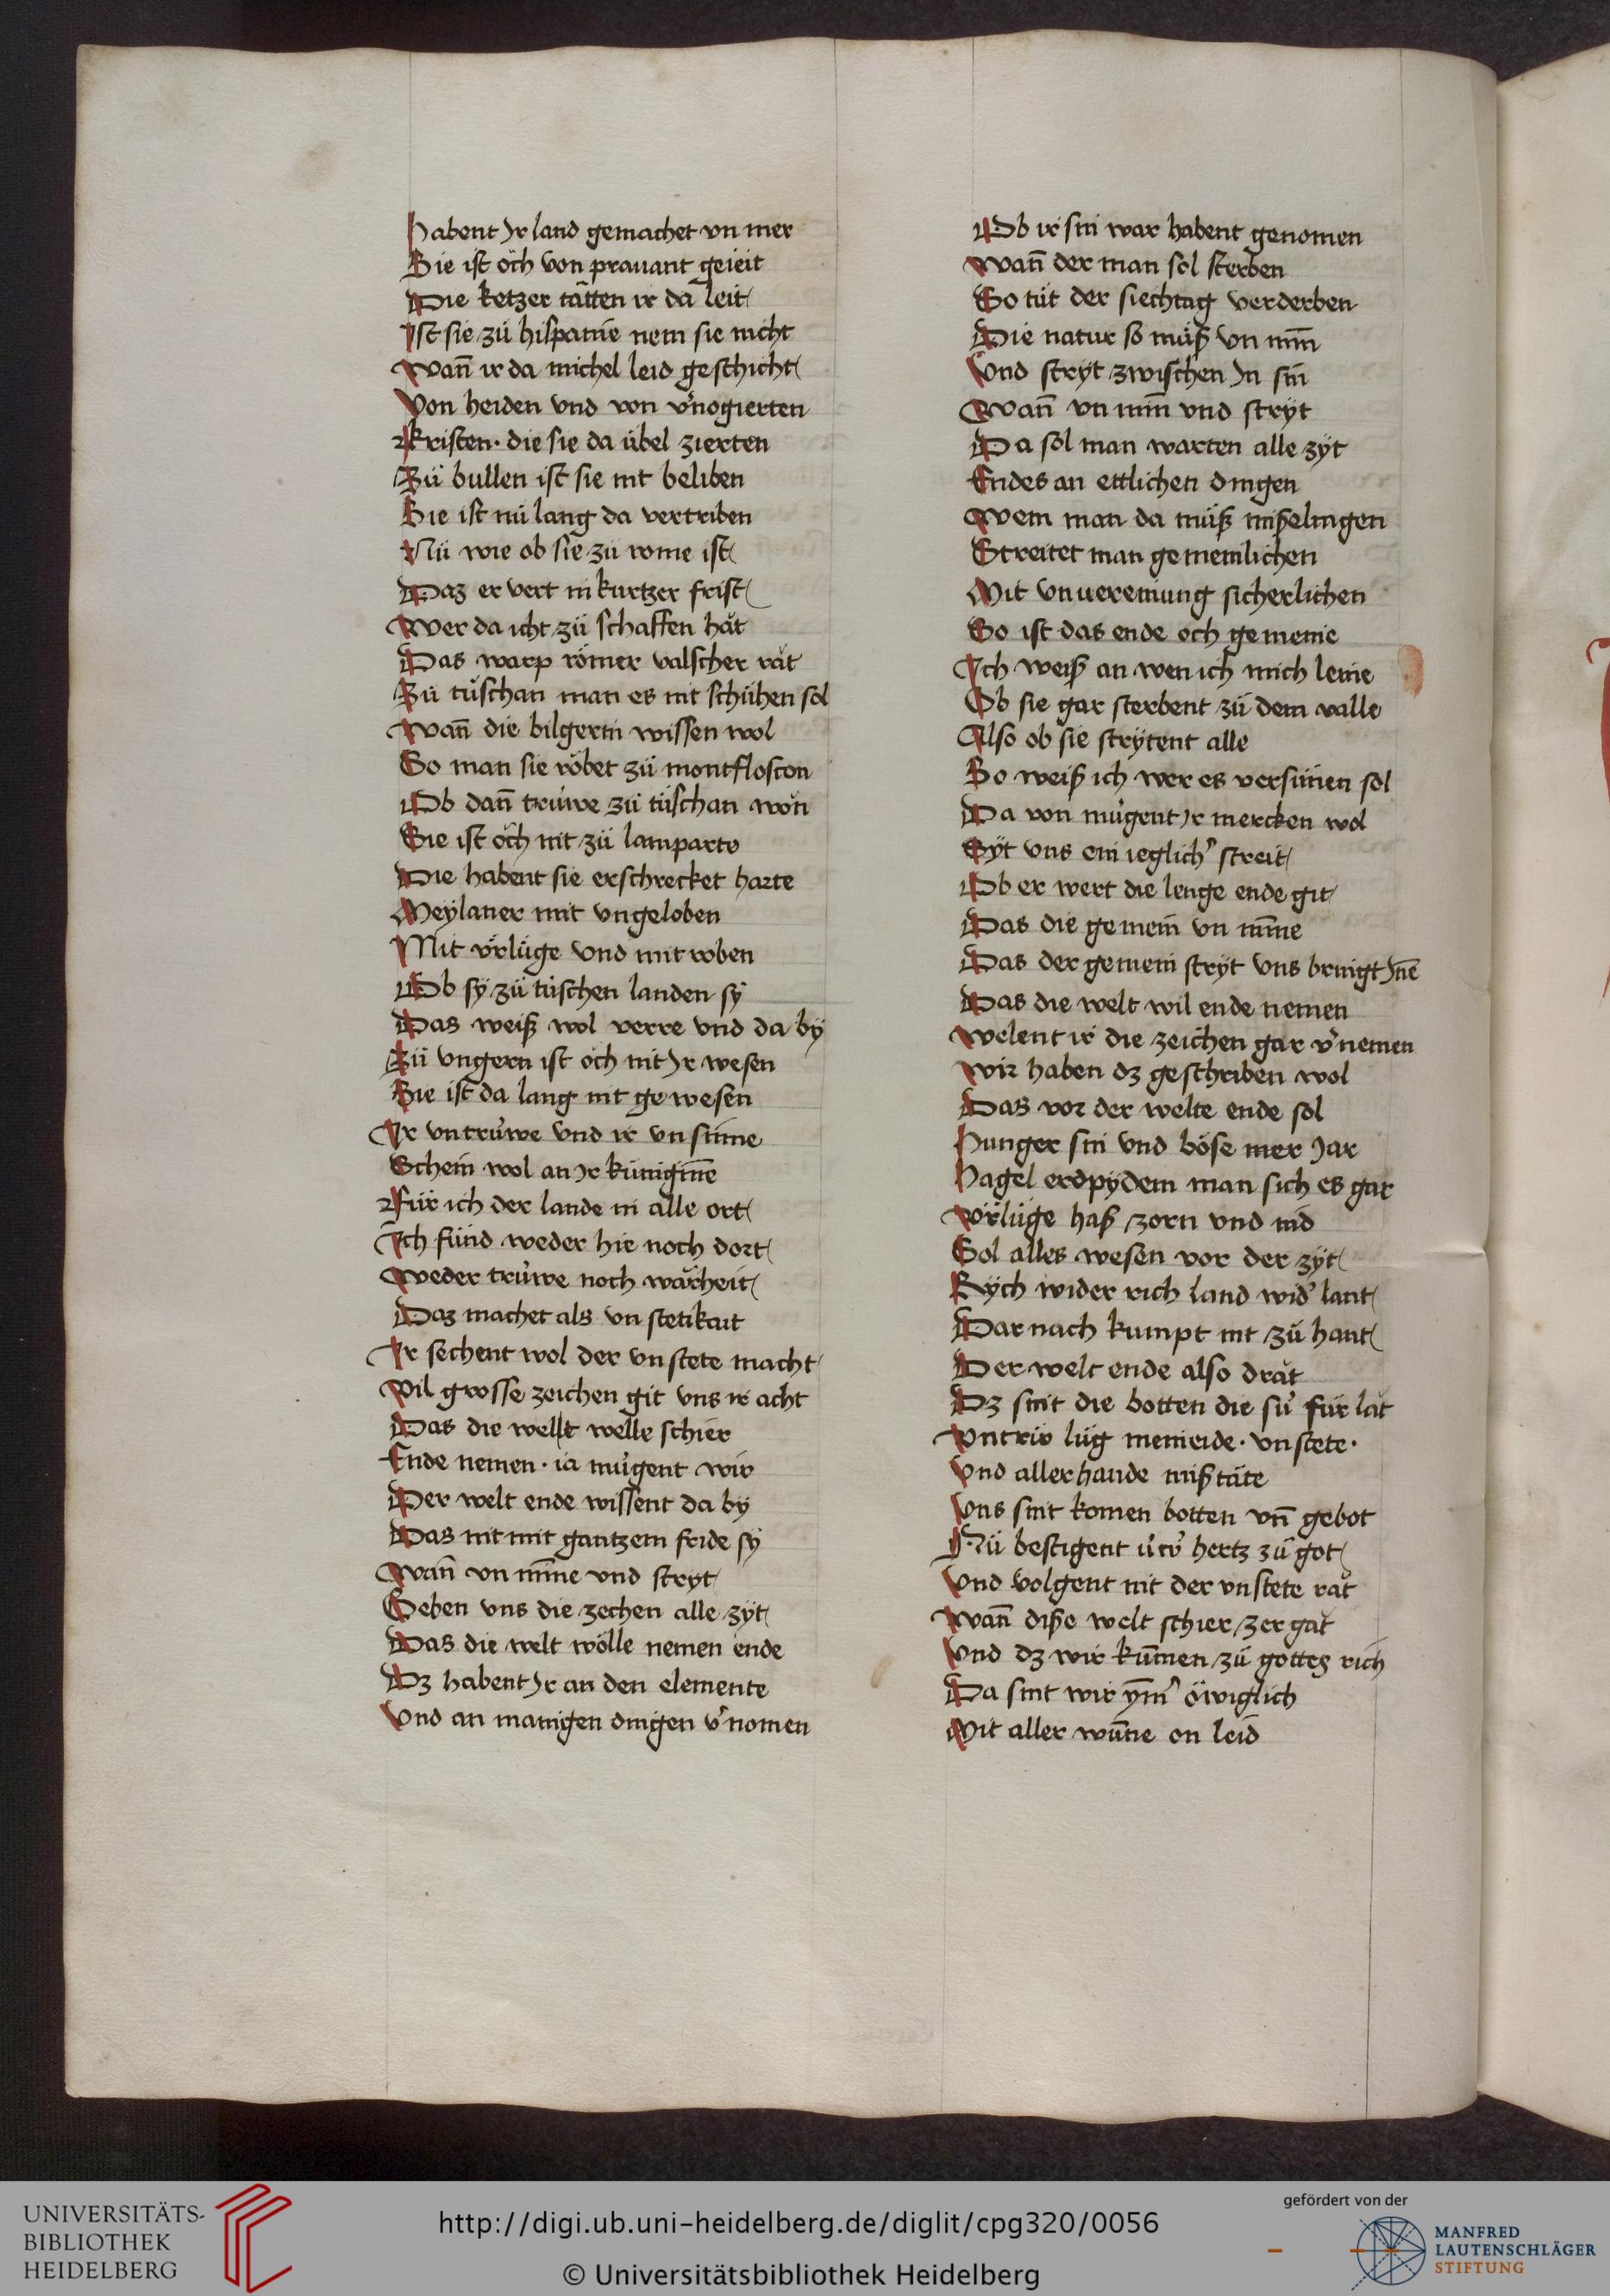 Habent Jr land gemachet vn mer
Sie ist öch von prauant geieit
Die ketzer tätten ir da leit
Ist sie zü hispanie nem sie nicht
Wann̄ ir da michel leid geschicht
Von heiden vnd von v'nogierten
Kristen· die sie da übel zierten
Zü bullen ist sie nit beliben
Sie ist nü lang da vertriben
Nü wie ob sie zü rome ist
Daz er vert in kurtzer frist
Wer da icht zü schaffen hät
Das warp römer valscher rät
Zü tüschan man es nit schühen sol
Wan̄ die bilgerin wissen wol
So man sie röbet zü montfloscon
Ob dan̄ trüwe zü tüschan won
Sie ist öch nit zü lamparte
Die habent sie erschrecket harte
Meylaner mit vngeloben
Mit vrlüge vnd mit roben
Ob sy zü tüschen landen sy
Das weiß wol verre vnd da by
Zü vngern ist öch nit Jr wesen
Sie ist da lang nit gewesen
Ir vntrüwe vnd ir vnsinne
Schein wol an Jr küniginne
Für ich der lande in alle ort
Ich fünd weder hie noch dort
Weder trüwe noch wärheit
Daz machet als vnstetikait
Ir sechent wol der vnstete macht
Vil grosse zeichen git vns ir acht
Das die wellt welle schier
Ende nemen· ia mügent wir
Der welt ende wissent da by
Das nit mit gantzem fride sy
Wan̄ vnmīne vnd stryt
Geben vns die zechen alle zyt
Das die welt wölle nemen ende
Dz habent Jr an den elemente
Vnd an manigen dingen v'nomen
Ob ir sin war habent genomen
Wan̄ der man sol sterben
So tüt der siechtag verderben
Die natur so müß vnminn
Vnd stryt zwischen Jn sin
Wan̄ vnminn vnd stryt
Da sol man warten alle zyt
Endes an ettlichen dingen
Wem man da müß mißelingen
Streitet man gemeinlichen
Mit vnuereinung sicherlichen
So ist das ende och gemeine
Ich weiß an wen ich mich leine
Ob sie gar sterbent zü dem valle
Also ob sie strytent alle
So weiß ich wer es versünen sol
Da von mügent Jr mercken wol
Syt vns ein ieglich' streit
Ob er wert die lenge ende git
Das die gemein vnmīne
Das der gemein stryt vns bringt Jnē
Das die welt wil ende nemen
Welent ir die zeichen gar v'nemen
Wir haben dz geschriben wol
Das vor der welte ende sol
Hunger sin vnd böse mer Jar
Hagel erdpydem man sich es gar
Vrlüge haß zorn vnd nid
Sol alles wesen vor der zyt
Rych wider rich land wid' lant
Dar nach kumpt nit zü hant
Der welt ende also drät
Dz sint die botten die sü für lät
Vntriv lüg meineide· vnstete·
Vnd aller hande mißtäte
Vns sint komen botten vn̄ gebot
Nü bestigent üw' hertz zü got
Vnd volgent nit der vnstete rät
Wan̄ diße welt schier zergät
Vnd dz wir kum̄en zü gottes rich
Da sint wir ym̄' öwiglich
Mit aller wun̄e on leid
UNIVERSITÄTS-
BIBLIOTHEK
HEIDELBERG
http://digi.ub.uni-heidelberg.de/diglit/cpg320/0056
© Universitätsbibliothek Heidelberg
gefördert von der
MANFRED
LAUTENSCHLÄGER
STIFTUNG